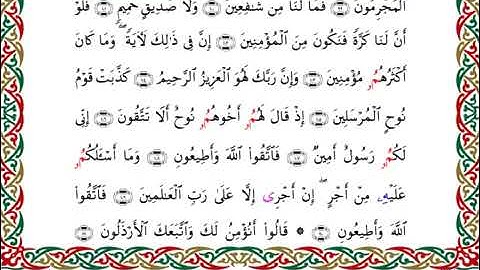 ٱلْمُجْرِمُونَ فَمَا لَنَا مِن شَٰفِعِينَ وَلَا صَدِيقٍ حَمِيمٍ فَلَوْ
أَنَّ لَنَا كَرَّةً فَنَكُونَ مِنَ ٱلْمُؤْمِنِينَ إِنَّ فِى ذَٰلِكَ لَأٓيَةً ۖ وَمَا كَانَ
أَكْثَرُهُمُۥ مُؤْمِنِينَ وَإِنَّ رَبَّكَ لَهُوَ ٱلْعَزِيزُ ٱلرَّحِيمُ كَذَّبَتْ قَوْمُ
نُوحٍ ٱلْمُرْسَلِينَ إِذْ قَالَ لَهُمُۥ أَخُوهُمُۥ نُوحٌ أَلَا تَتَّقُونَ إِنِّى
لَكُمُۥ رَسُولٌ أَمِينٌ فَٱتَّقُوا۟ ٱللَّهَ وَأَطِيعُونِ وَمَا أَسْـَٔلُكُمُۥ
عَلَيْهِۦ مِنْ أَجْرٍ ۖ إِنْ أَجْرِى إِلَّا عَلَىٰ رَبِّ ٱلْعَٰلَمِينَ فَٱتَّقُوا۟
ٱللَّهَ وَأَطِيعُونِ ۞ قَالُوٓا۟ أَنُؤْمِنُ لَكَ وَٱتَّبَعَكَ ٱلْأَرْذَلُونَ